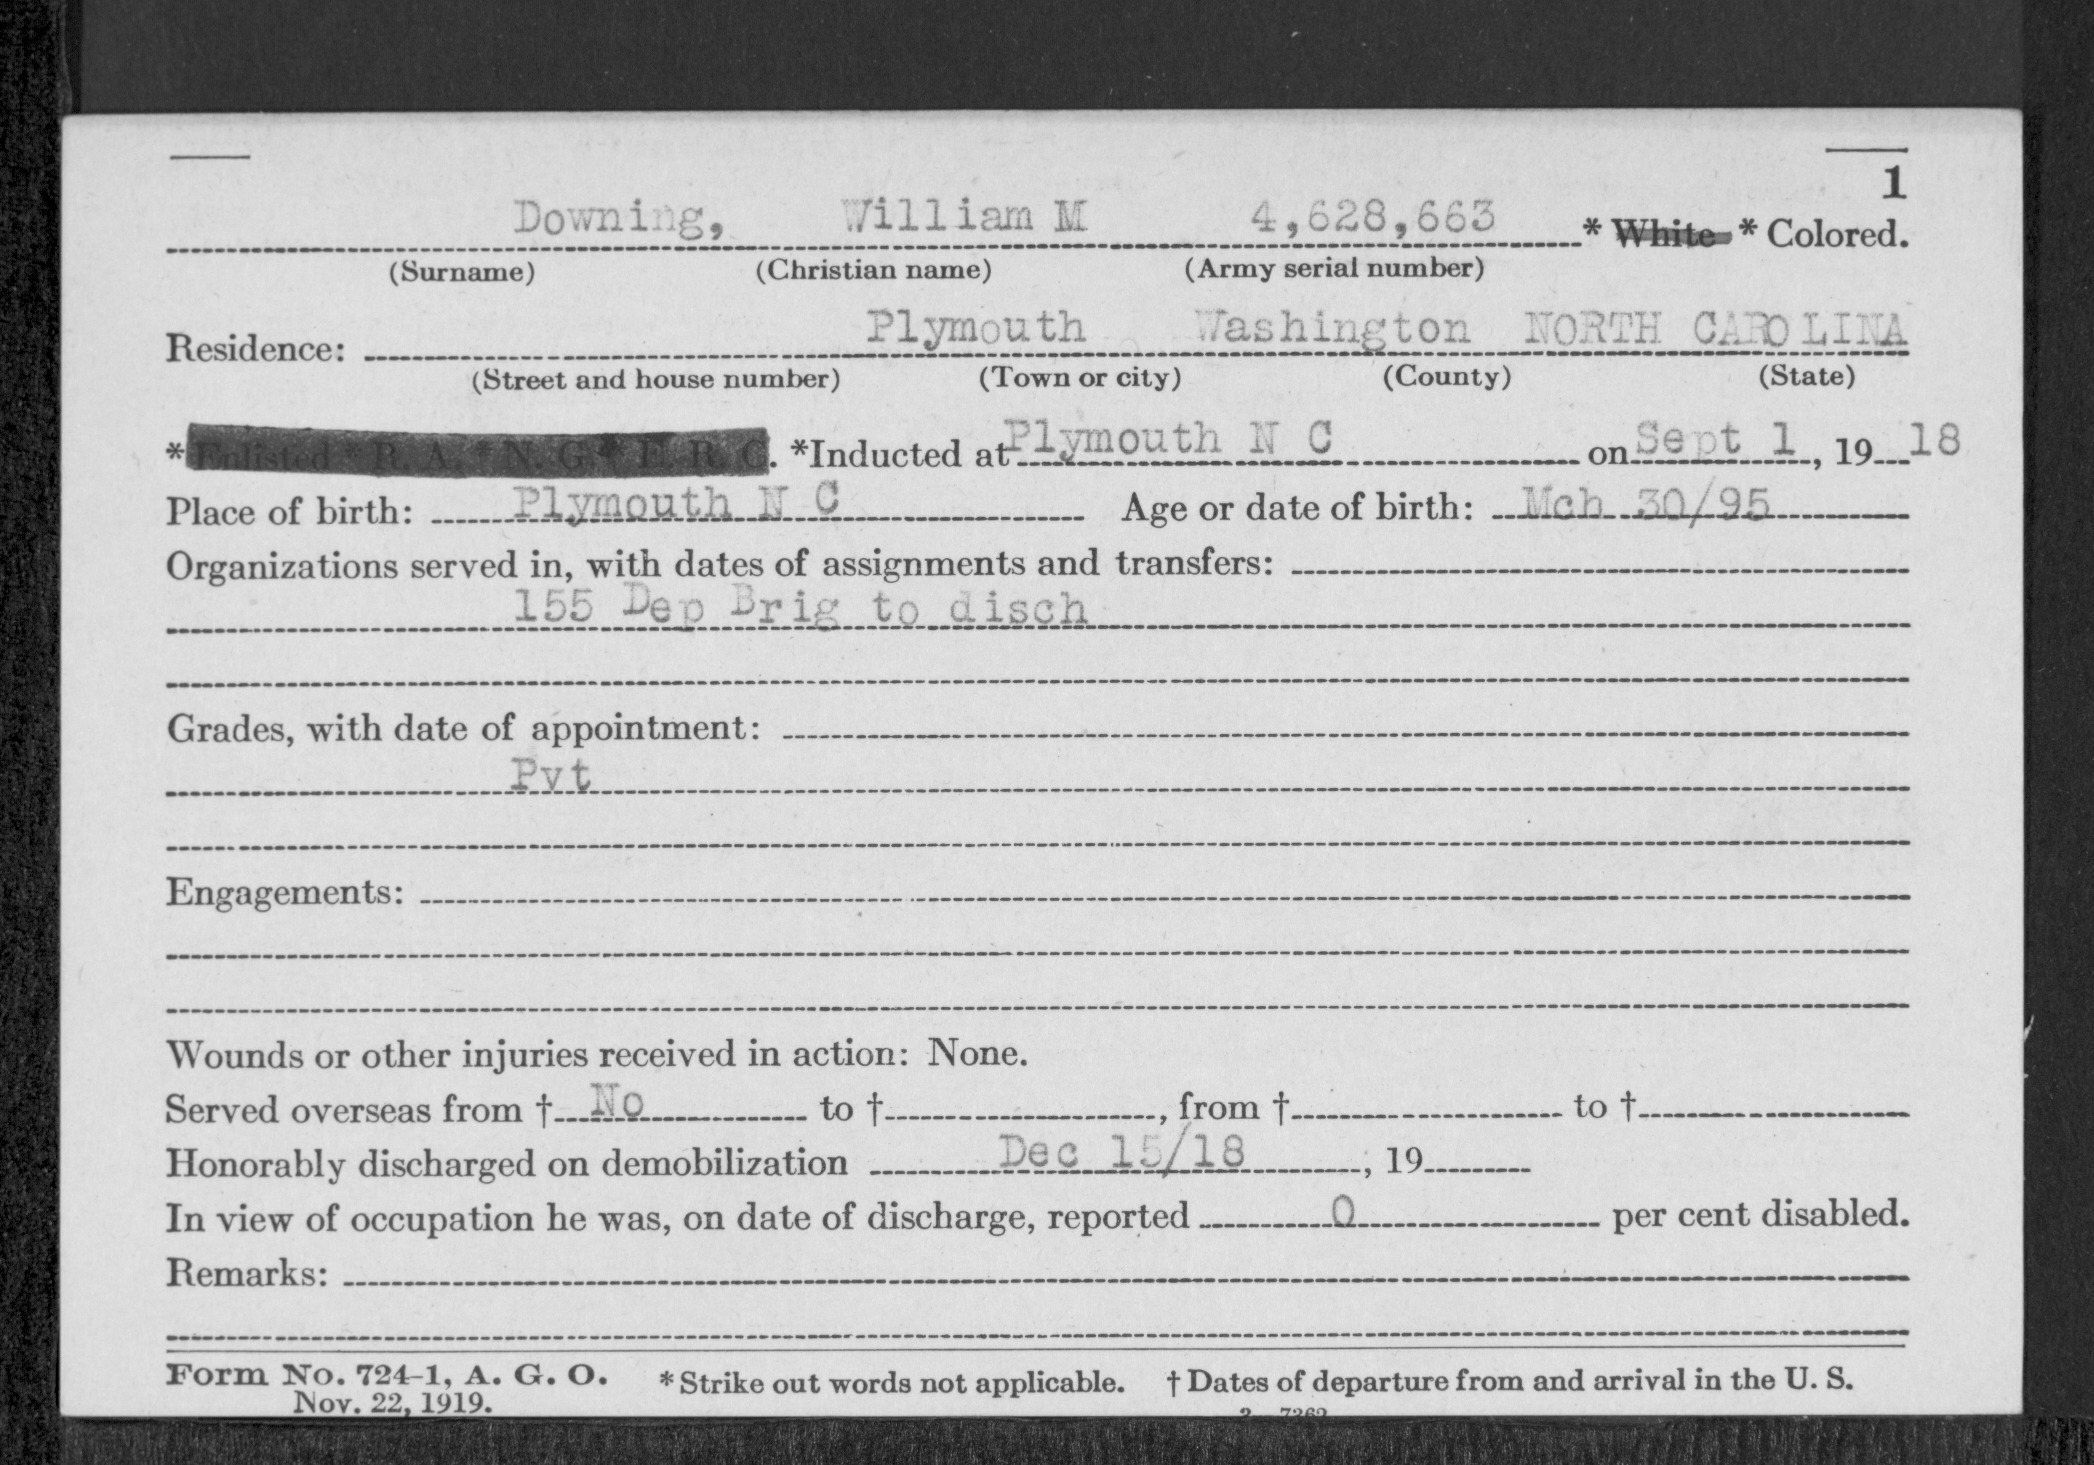 1
Downing, William M 4,628,663 * White * Colored.
(Surname) (Christian name) (Army serial number)
Residence: Plymouth Washington NORTH CAROLINA
(Street and house number) (Town or city) (County) (State)
* Enlisted * R. A. * N. G. * E. R. C. *Inducted at Plymouth N C on Sept 1, 19 18
Place of birth: Plymouth N C Age or date of birth: Mch 30/95
Organizations served in, with dates of assignments and transfers:
155 Dep Brig to disch
Grades, with date of appointment:
Pvt
Engagements:
Wounds or other injuries received in action: None.
Served overseas from † No to †, from † to †
Honorably discharged on demobilization Dec 15/18, 19
In view of occupation he was, on date of discharge, reported 0 per cent disabled.
Remarks:
Form No. 724-1, A. G. O. * Strike out words not applicable. † Dates of departure from and arrival in the U. S.
Nov. 22, 1919.